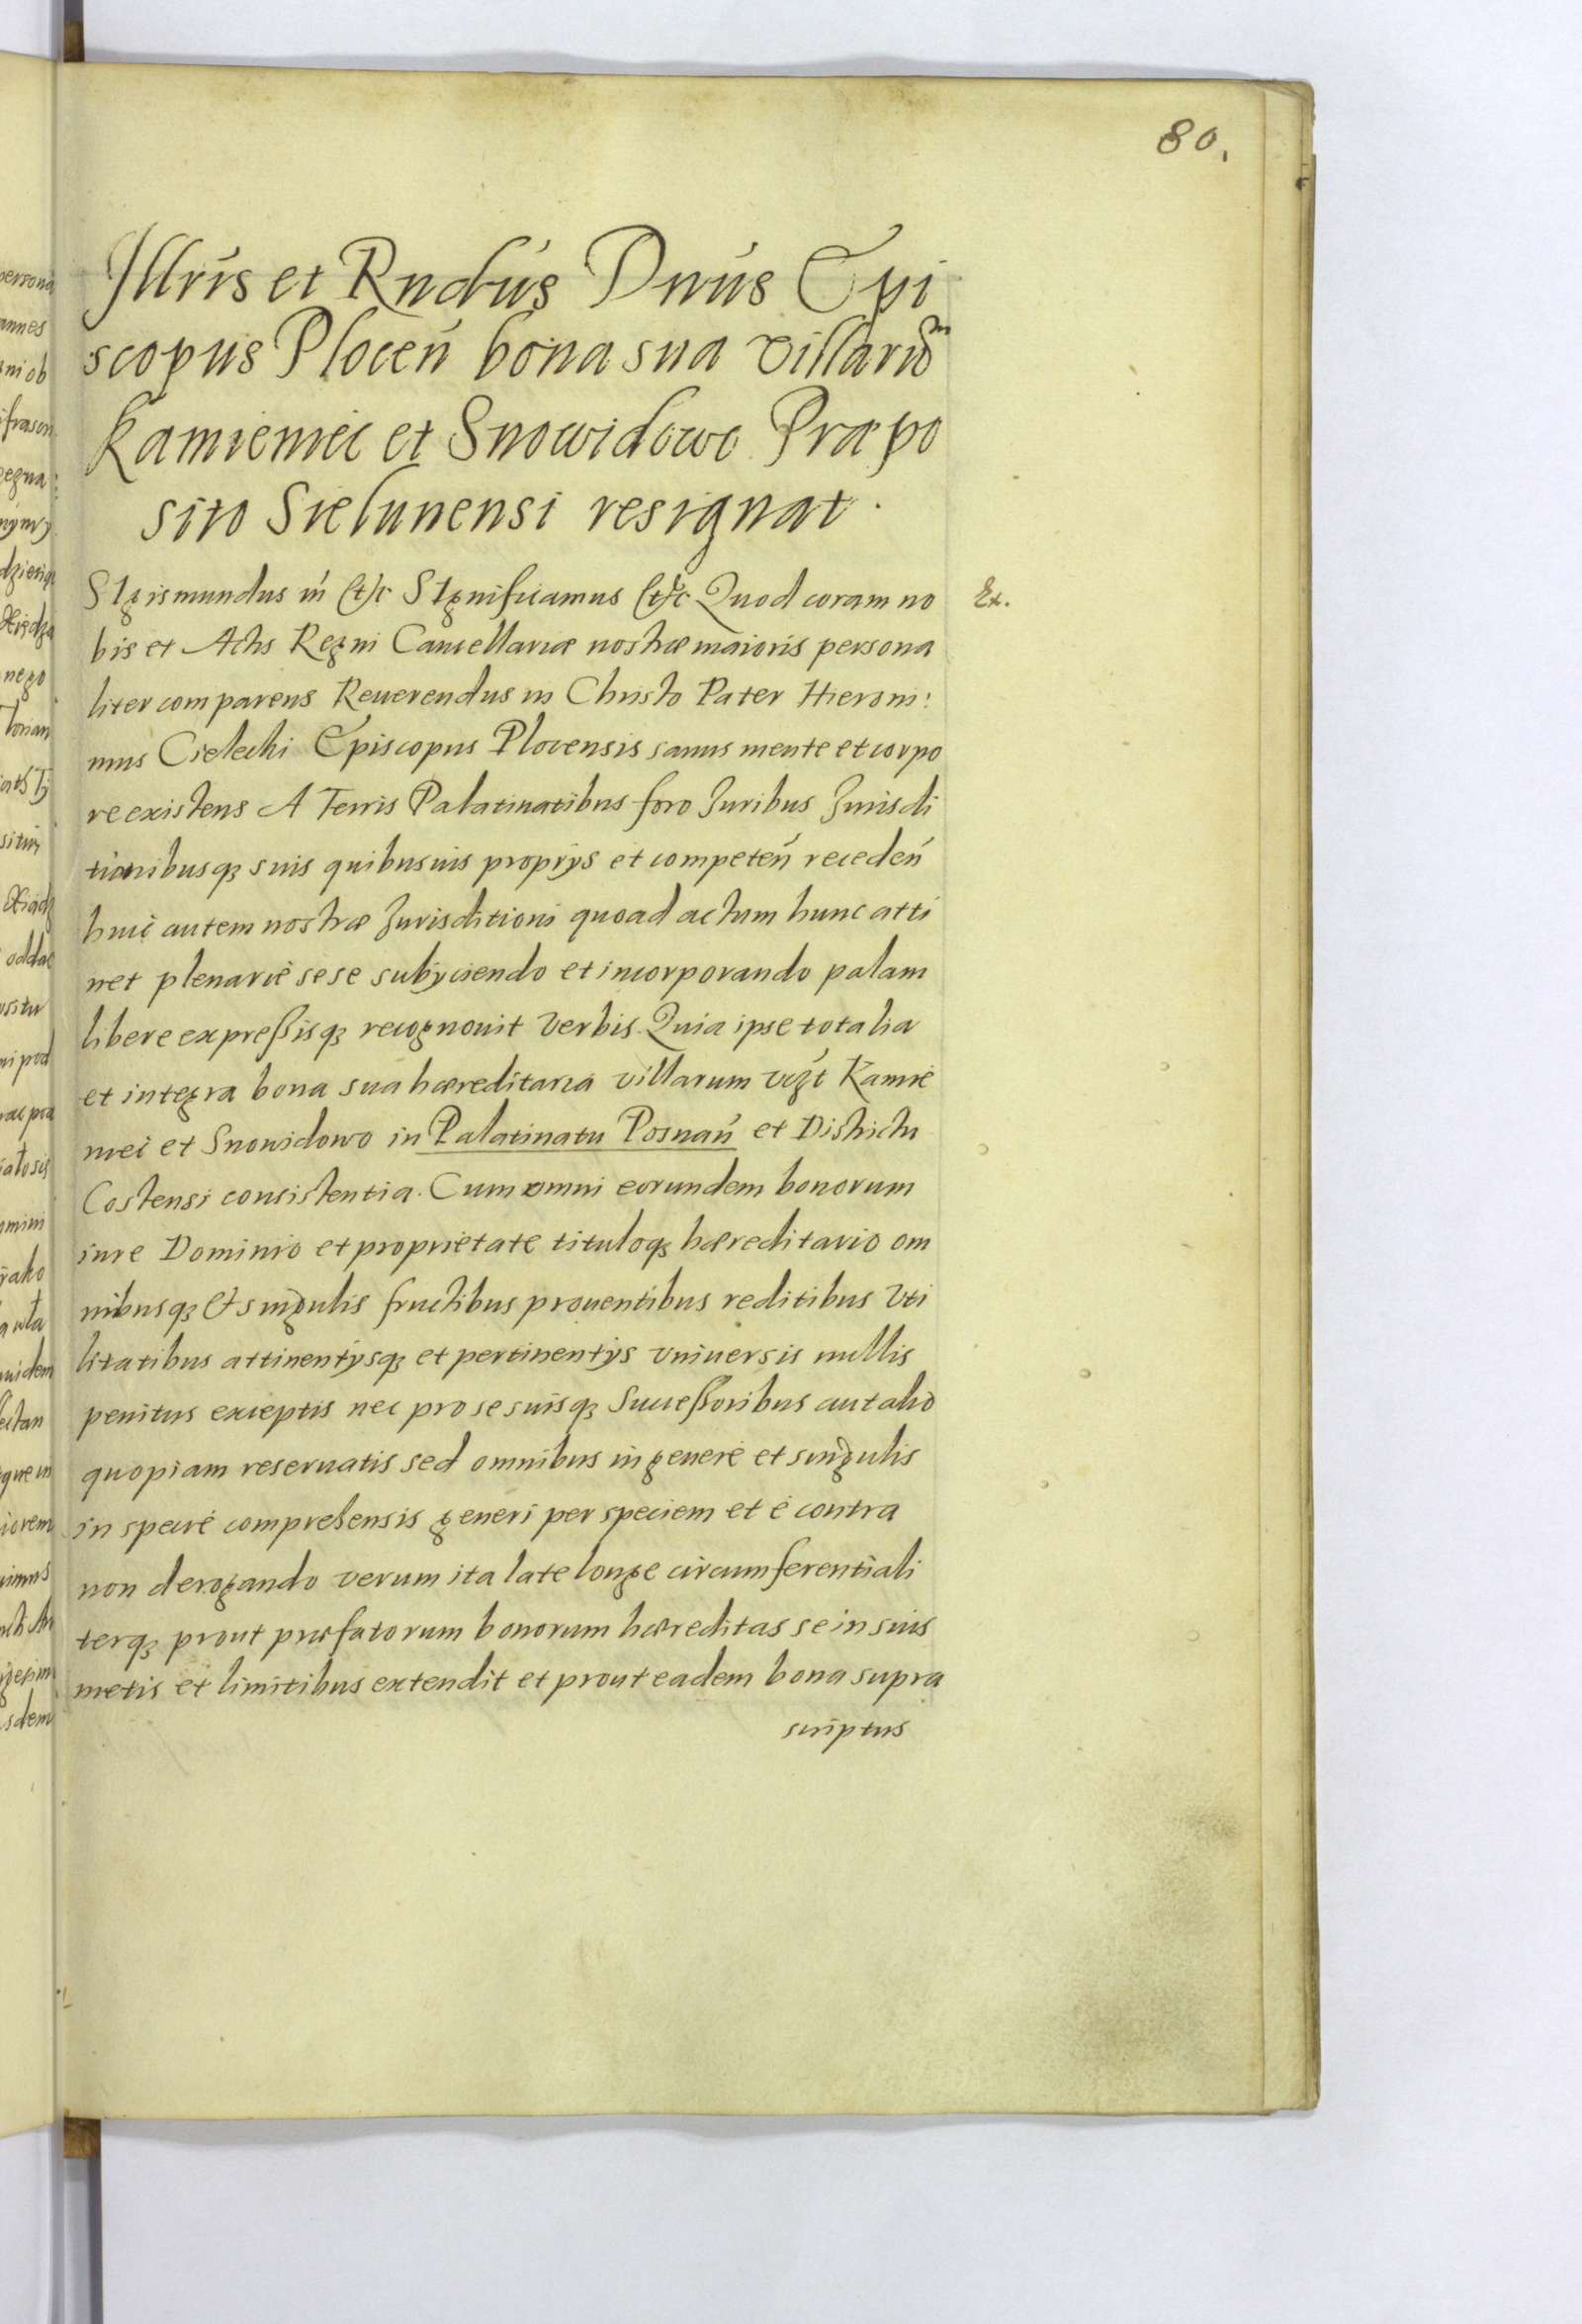 80.
Illris et Rndus Dnus Epi
scopus Plocen bona sua villaru
Kamieniec et Snowidowo Præpo
sito Sielunensi resignat.
SIgismundus etc SIgnificamus etc Quod coram no
Ex.
bis et Actis Regni Cancellariæ nostræ maioris persona
liter comparens Reuerendus in Christo Pater Hieroni:
mus Cielecki Episcopus Plocensis sanus mente et corpo
re existens A Terris Palatinatibus foro Iuribus Iurisdi
tionibusq3 suis quibusuis proprijs et competen receden
huic autem nostræ Iurisditioni quoad actum hunc atti
net plenarie sese subijciendo et incorporando palam
libere expreßisq3 recognouit verbis Quia ipse totalia
et integra bona sua hæreditaria villarum vczt Kamie
niec et Snowidowo in Palatinatu Posnan et Districtu
Costensi consistentia. Cum omni eorundem bonorum
iure Dominio et proprietate tituloq3 hæreditario om
nibusq3 et singulis fructibus prouentibus reditibus vti
litatibus attinentijsq3 et pertinentijs vniuersis nullis
penitus exceptis nec pro se suisq3 Succeßoribus aut alio
quopiam reseruatis sed omnibus in genere et singulis
in specie comprehensis generi per speciem et è contra
non derogando verum ita late longe circumferentiali
terq3 prout præfatorum bonorum hæreditas se in suis
metis et limitibus extendit et prout eadem bona supra
scriptus